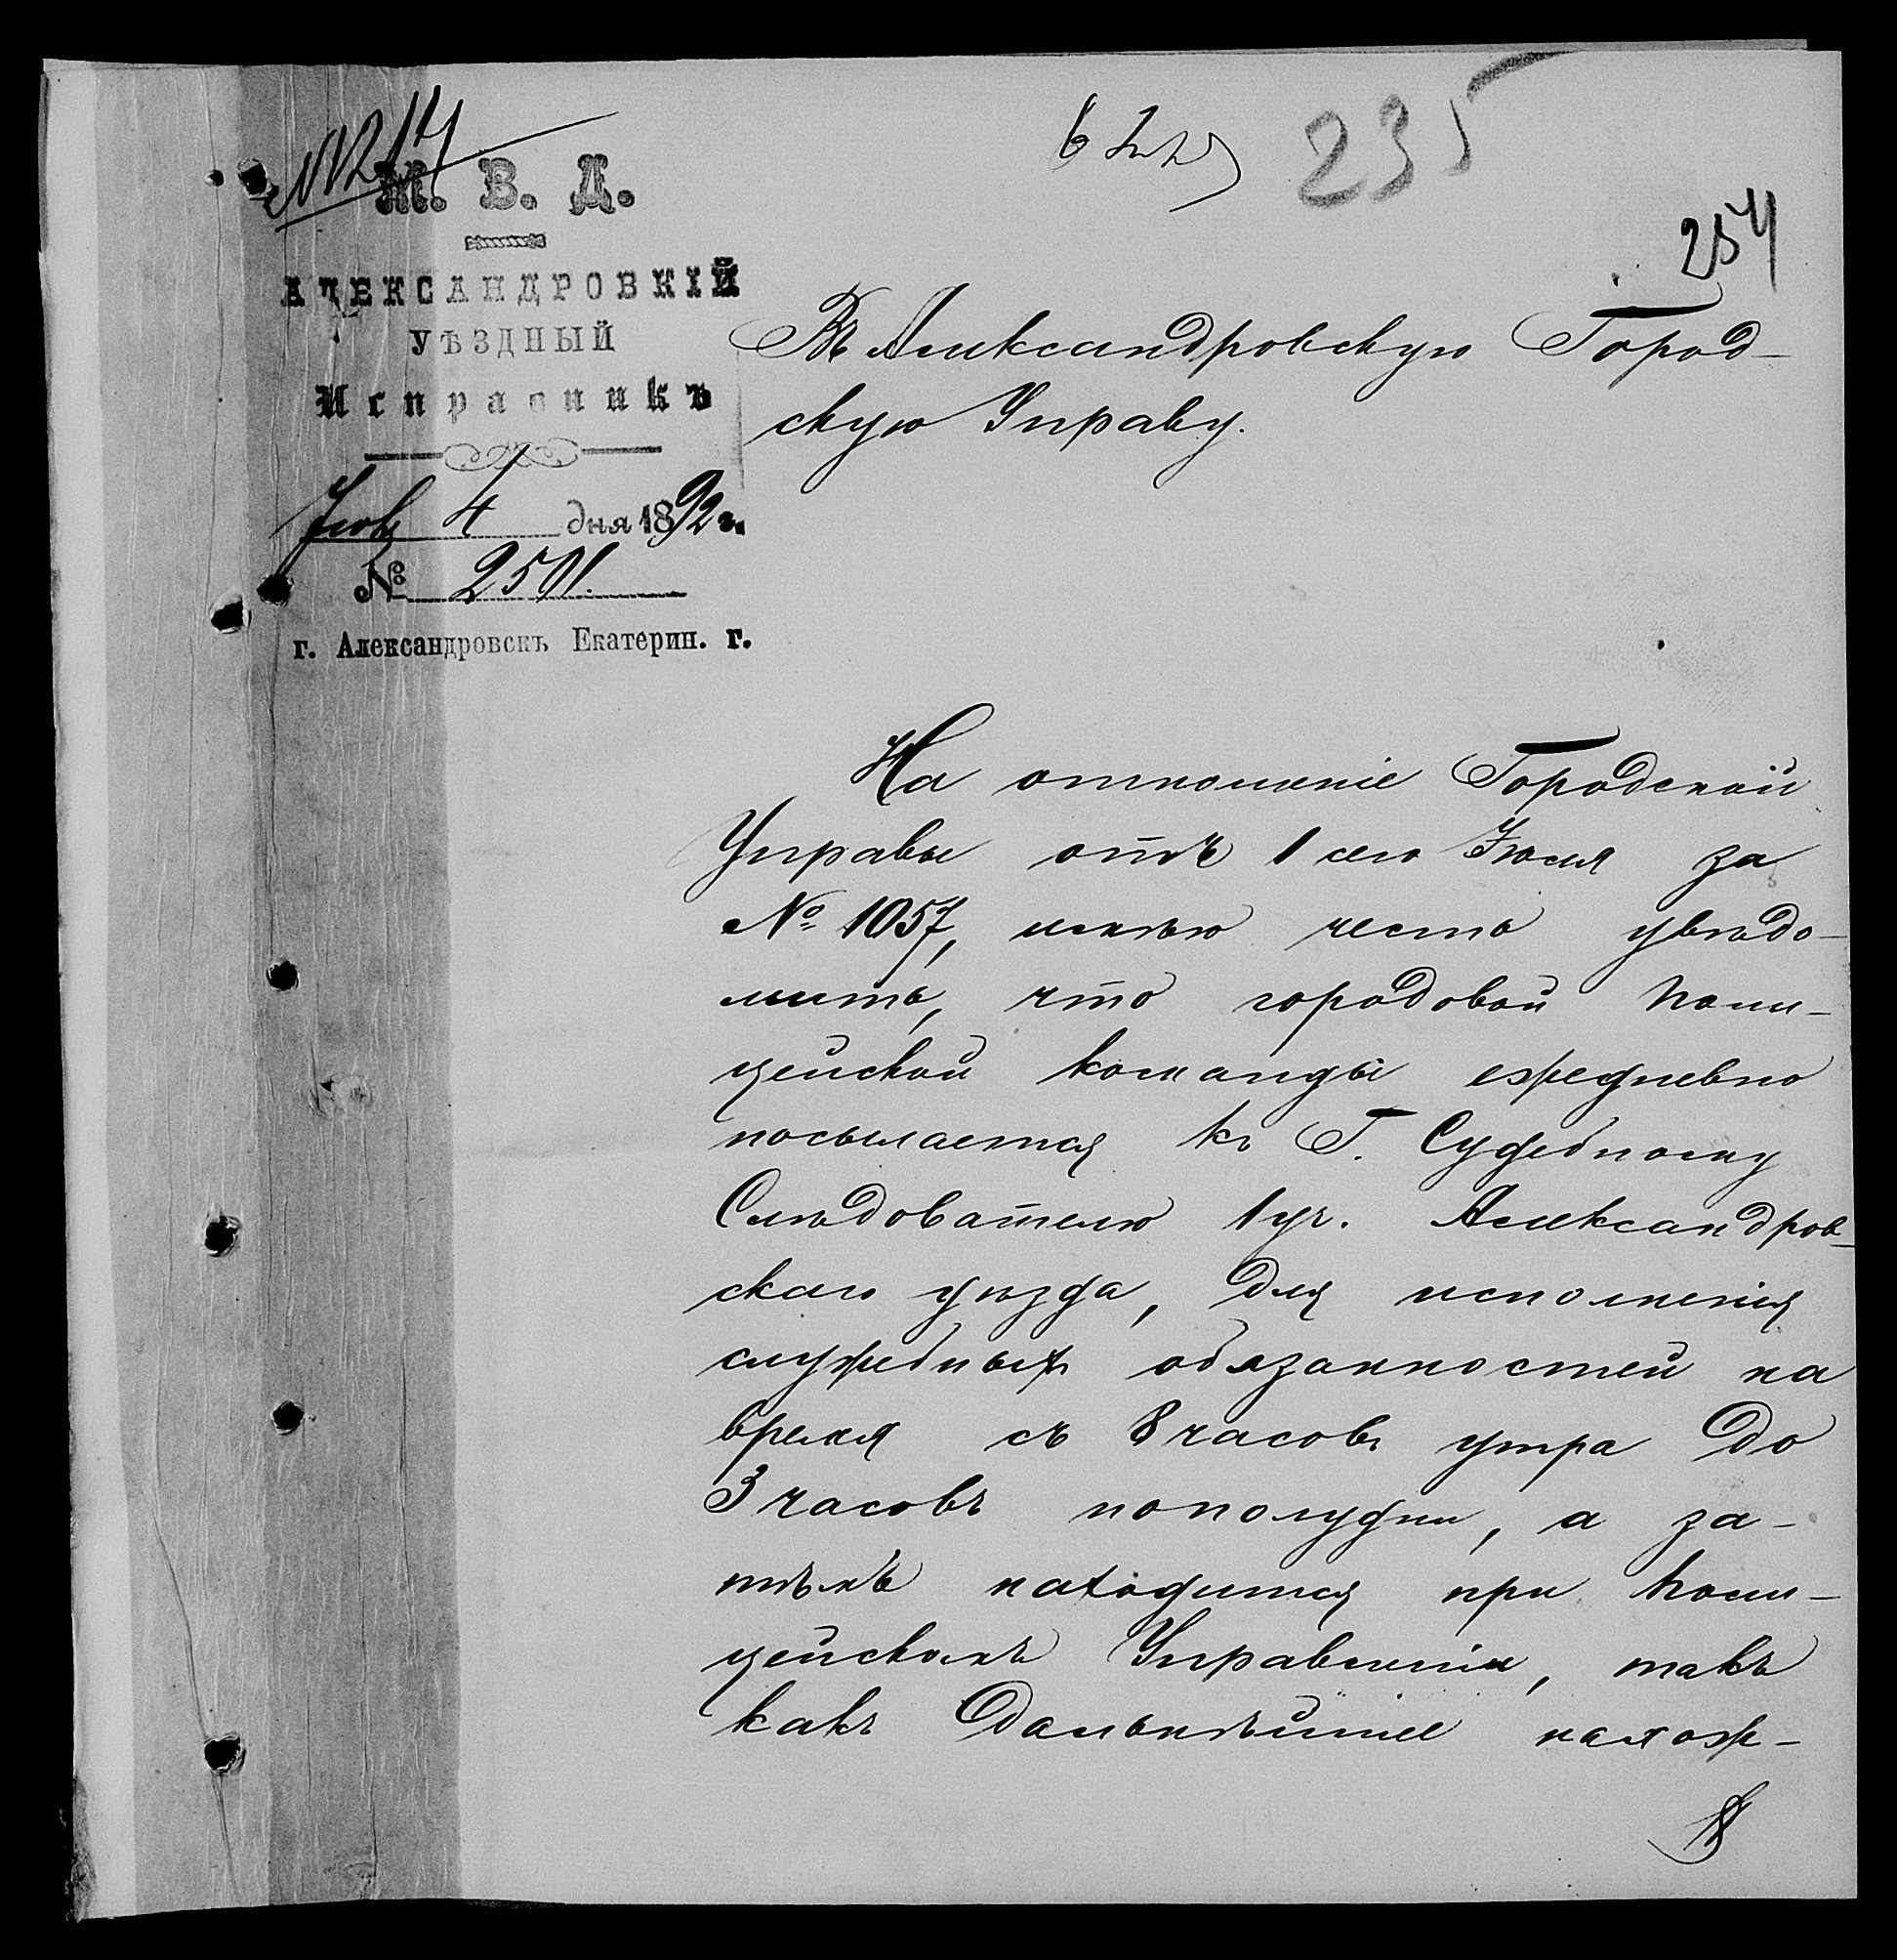 235
254
М. В. Д.
АЛЕКСАНДРОВКІЙ
УѢЗДНЫЙ
Исправникъ
4 дня 1892 г.
№ 2501.
г. Александровскъ Екатерин. г.
Въ Александровскую Город-
скую Управу.
На отношеніе Городской
Управы отъ 1 сего Іюля за
№ 1057, имѣю честь увѣдо-
мить, что городовой поли-
цейской команды ежедневно
посылается къ Г. Судебному
Слѣдователю 1 уч. Александров-
скаго уѣзда, для исполненія
служебныхъ обязанностей на
время съ 8 часовъ утра до
3 часовъ пополудни, а за-
тѣмъ находится при Поли-
цейскомъ Управленіи, такъ
какъ дальнѣйшее нахож-